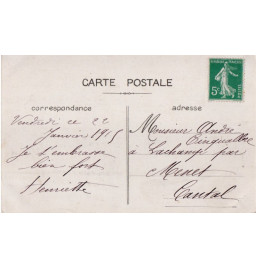 CARTE POSTALE
correspondance
Vendredi ce 22
Janvier 1915
Je t'embrasse
bien fort
Henriette
adresse
Monsieur André
à Lachamp par
Menet
Cantal
5c